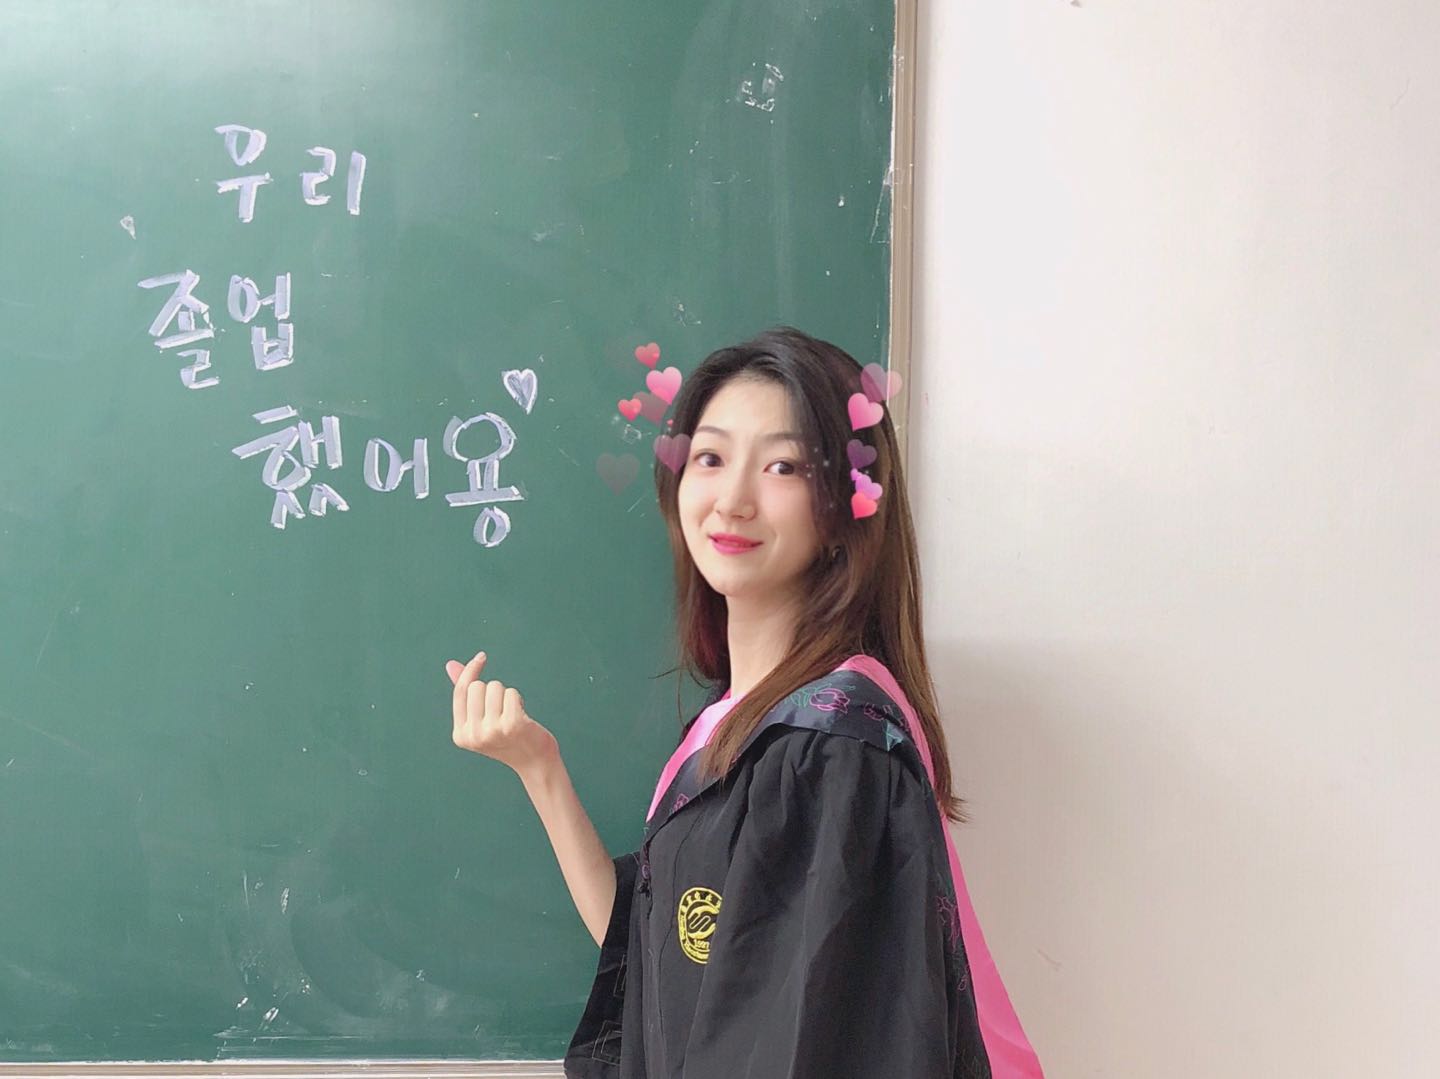 우리
졸업
했어용